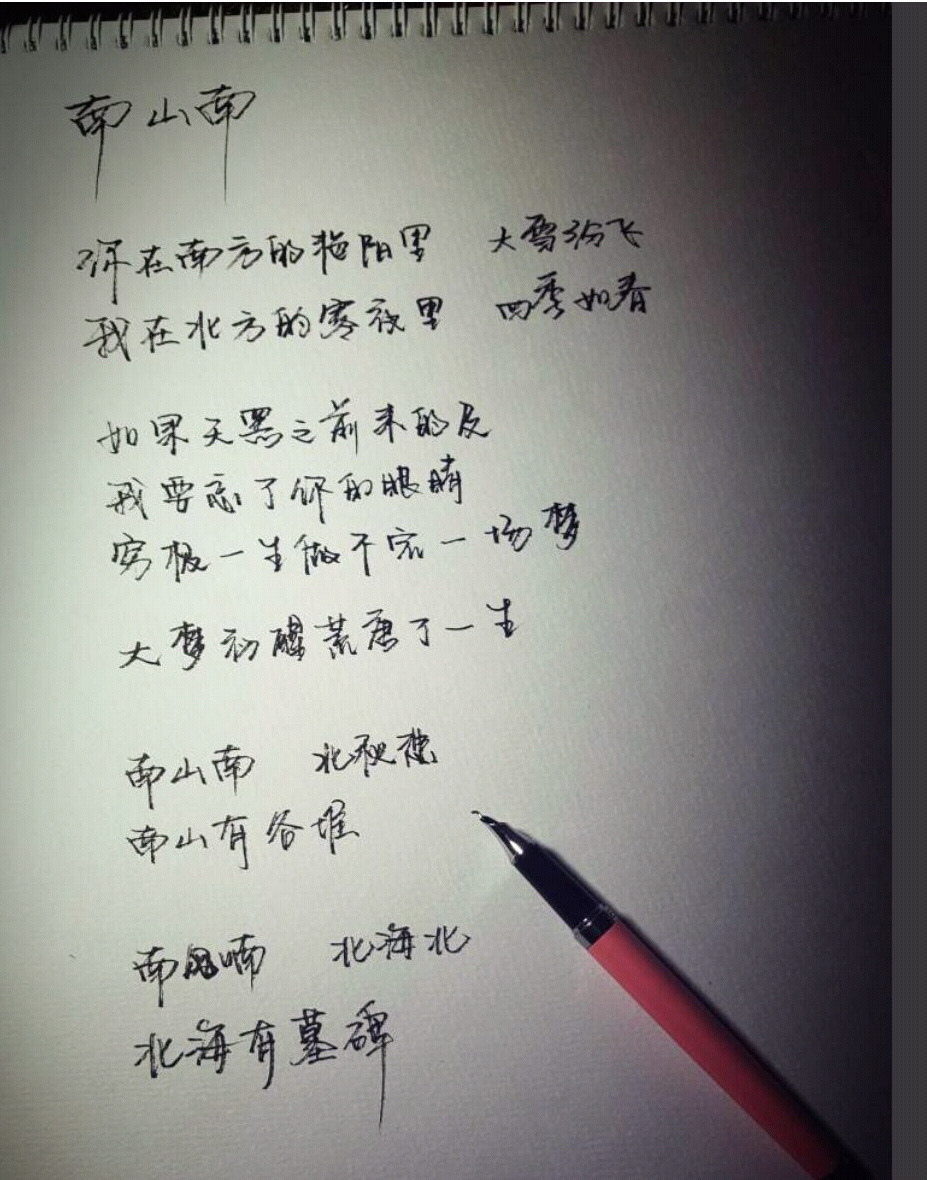 南山南
你在南方的艳阳里 大雪纷飞
我在北方的寒夜里 四季如春
如果天黑之前来的及
我要忘了你的眼睛
穷极一生做不完一场梦
大梦初醒荒唐了一生
南山南 北秋悲
南山有谷堆
南喃 北海北
北海有墓碑